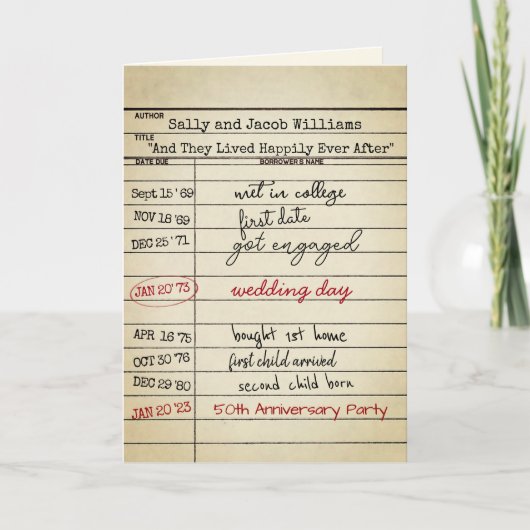 AUTHOR
Sally and Jacob Williams
TITLE
"And They Lived Happily Ever After"
DATE DUE BORROWER'S NAME
Sept 15 '69 met in college
NOV 18 '69 first date
DEC 25 '71 got engaged
JAN 20 '73 wedding day
APR 16 '75 bought 1st home
OCT 30 '76 first child arrived
DEC 29 '80 second child born
JAN 20 '23 50th Anniversary Party